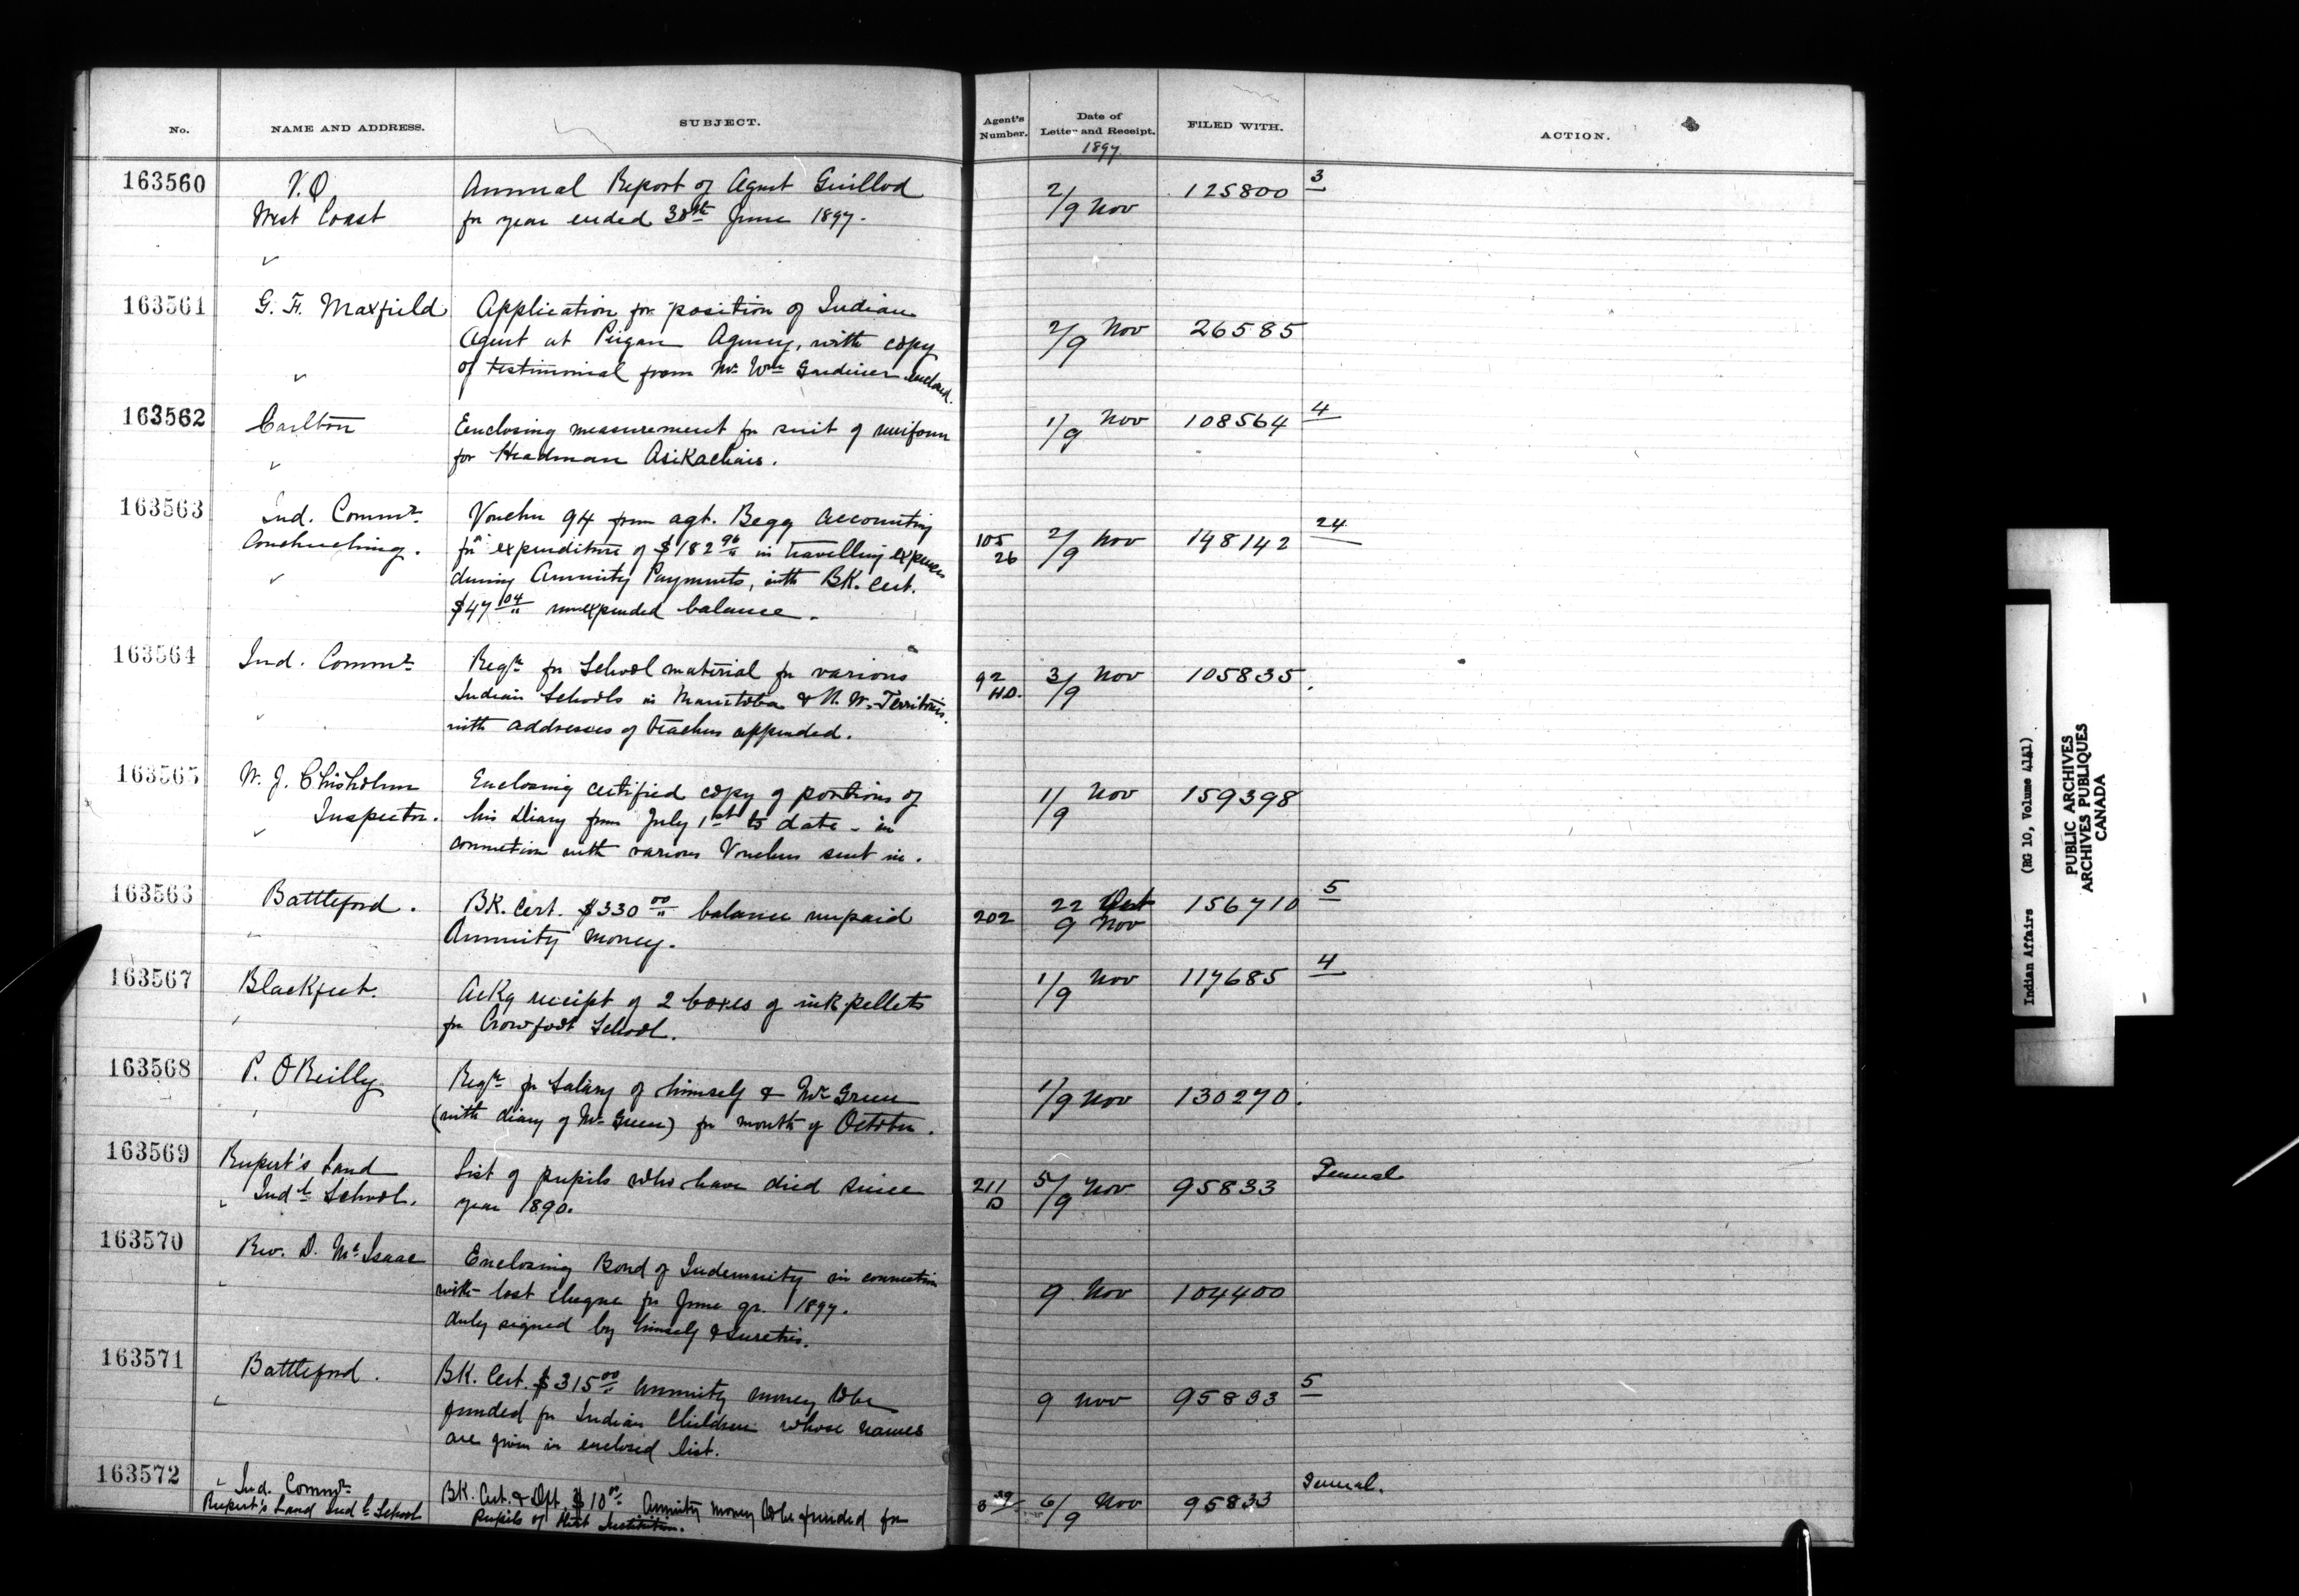 No.
NAME AND ADDRESS.
SUBJECT.
Agent's Number.
Date of Letter and Receipt.
1897
FILED WITH.
ACTION.
163560
West Coast
Annual Report of Agent Guillod
for year ended 30th June 1897.
2/9 Nov
125800
3
163561
G. F. Maxfield
Application for position of Indian
Agent at Peigan Agency, with copy
of testimonial from Mr Wm Gardiner enclosed.
2/9 Nov
26585
163562
Carlton
Enclosing measurement for suit of uniform
for Headman Asikachais.
1/9 Nov
108564
4
163563
Ind. Commr.
Conchuching.
Voucher 94 from agt. Begg accounting
for expenditure of $182 96 in travelling expenses
during Annuity Payments, with BK. Cert.
$47 04 unexpended balance.
105
26
2/9 Nov
148142
24
163564
Ind. Commr
Reqn for School material for various
Indian Schools in Manitoba & N. W. Territories.
with addresses of teachers appended.
92
HD.
3/9 Nov
105835.
163565
W. J. Chisholm
Inspector.
Enclosing certified copy of portions of
his Diary from July 1st to date - in
connection with various Vouchers sent in.
1/9 Nov
159398
163566
Battleford.
BK. Cert. $330 00 balance unpaid
Annuity money.
202
22 Oct
9 Nov
156710
5
163567
Blackfeet.
Ackg receipt of 2 boxes of ink pellets
for Crowfoot School.
1/9 Nov
117685
4
163568
P. O'Reilly
Reqn for Salary of himself & Mr Green
(with diary of Mr Green) for month of October.
1/9 Nov
130270.
163569
Rupert's Land
Indl School.
List of pupils who have died since
year 1890.
211
D
5/9 Nov
95833
General
163570
Rev. D. McIsaac
Enclosing Bond of Indemnity in connection
with lost cheque for June qr. 1897.
duly signed by himself & sureties.
9 Nov
104400
163571
Battleford.
BK. Cert. $315 00 Annuity money to be
funded for Indian Children whose names
are given in enclosed list.
9 Nov
95833
5
163572
Ind. Commr
Rupert's Land Indl School
BK. Cert. & Dft. $10 00 Annuity money to be funded for
Pupils of that Institution.
6/9 Nov
95833
General.
Indian Affairs (RG 10, Volume 4141)
PUBLIC ARCHIVES
ARCHIVES PUBLIQUES
CANADA